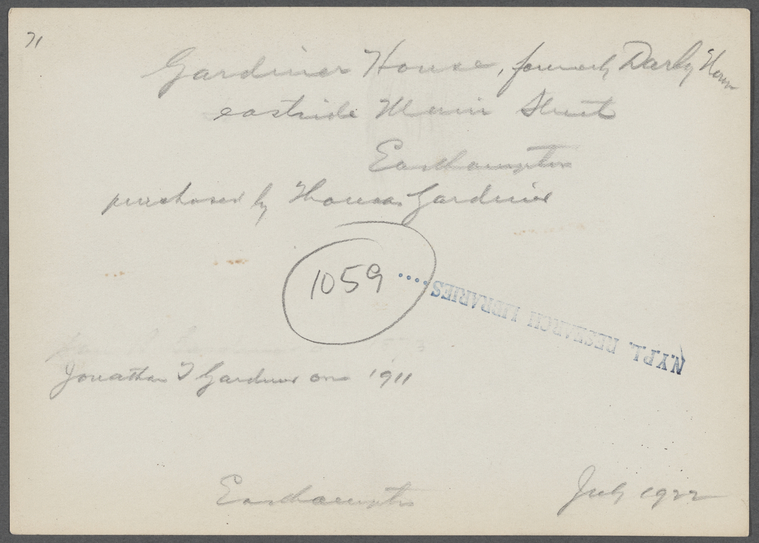 71
Gardiner House, formerly Darby House
eastside Main Street
Easthampton
purchased by Thomas Gardiner
1059
N.Y.P.L. RESEARCH LIBRARIES....
Jonathan T Gardiner own 1911
Easthampton
July 1922